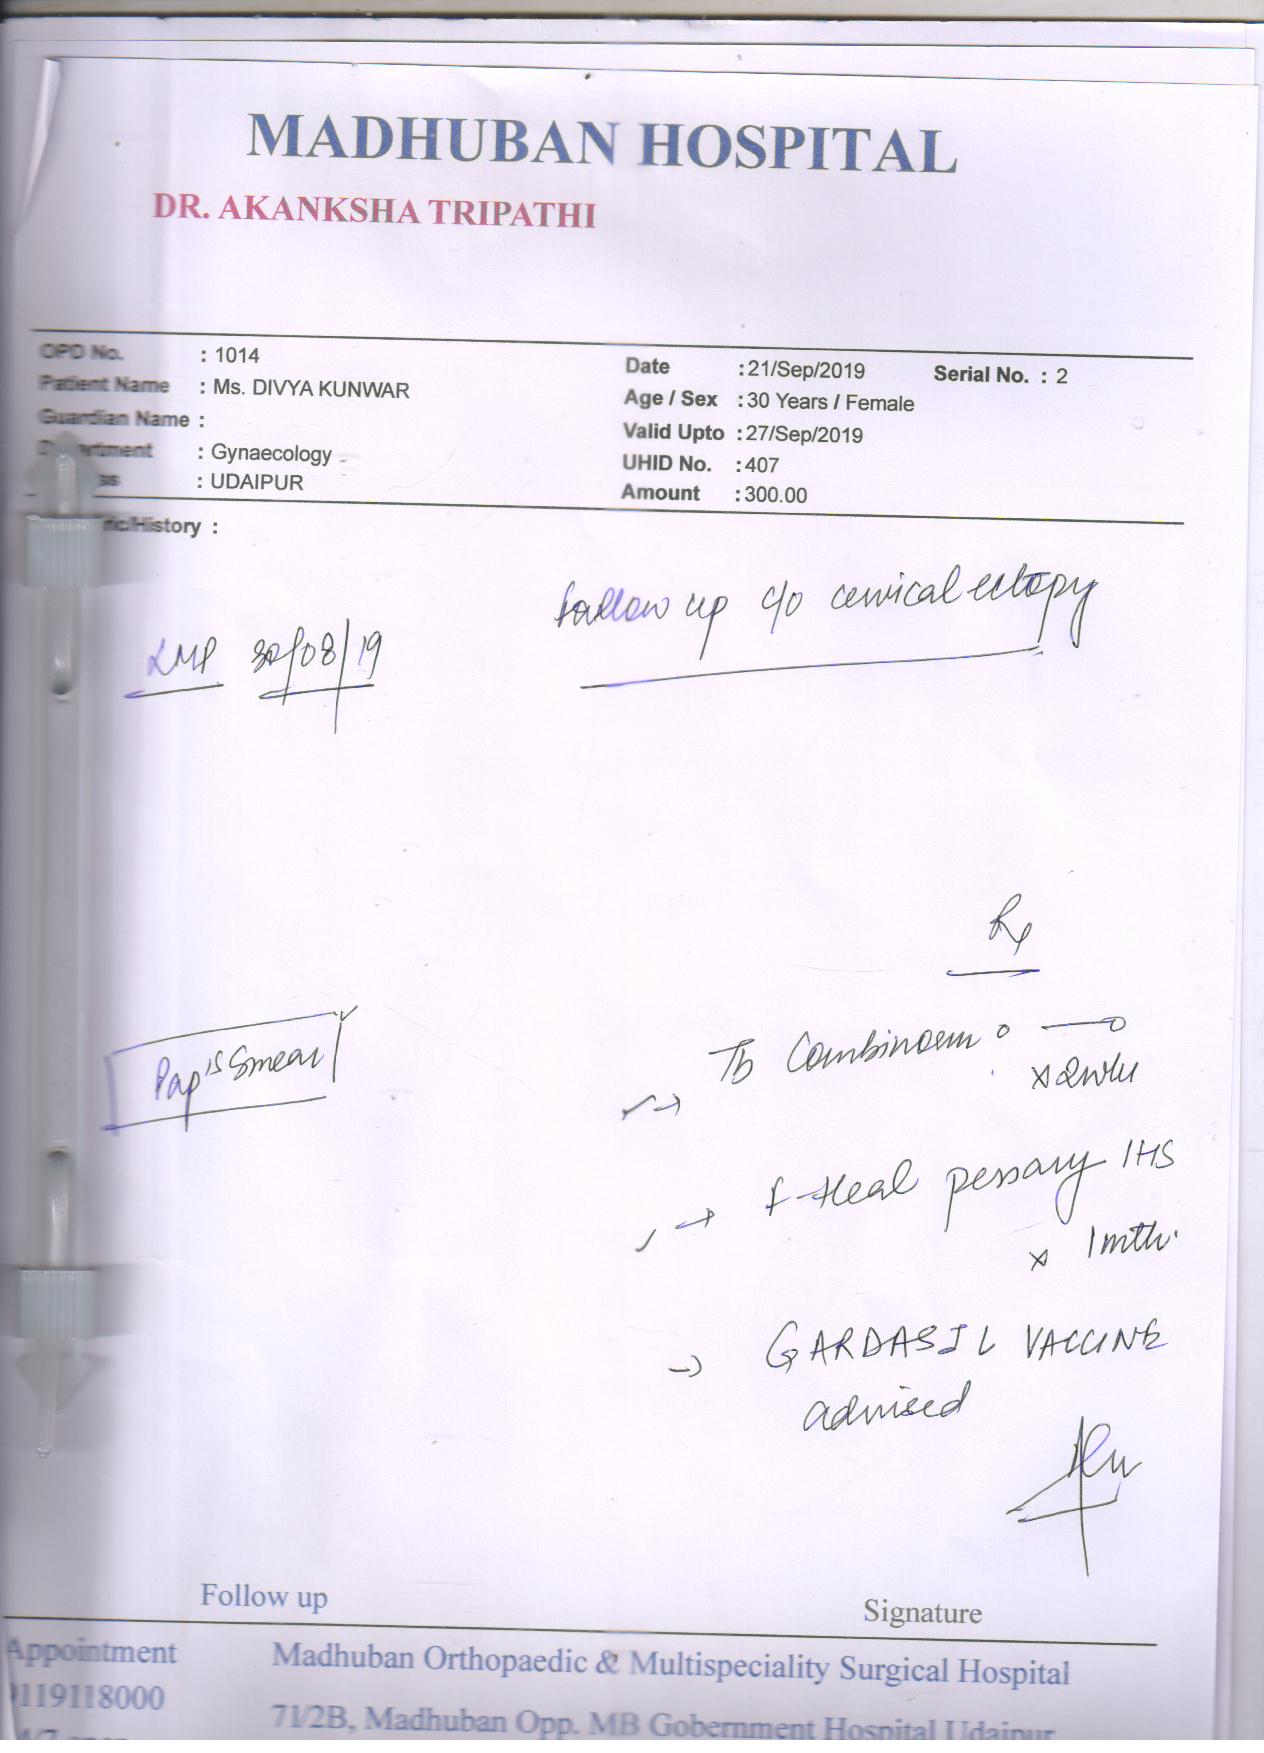 MADHUBAN HOSPITAL
DR. AKANKSHA TRIPATHI
OPD No. : 1014
Patient Name : Ms. DIVYA KUNWAR
Guardian Name :
Department : Gynaecology
: UDAIPUR
Date : 21/Sep/2019 Serial No. : 2
Age / Sex : 30 Years / Female
Valid Upto : 27/Sep/2019
UHID No. : 407
Amount : 300.00
/History :
follow up c/o cervical ectopy
LMP 30/08/19
Rx
Tb Combinorm 0 — 0
x 2wks
Pap's Smear
→ f-Heal pessary 1HS
x 1mth.
→ GARDASIL VACCINE
advised
Follow up
Signature
Appointment
9119118000
Madhuban Orthopaedic & Multispeciality Surgical Hospital
71/2B, Madhuban Opp. MB Gobernment Hospital Udaipur